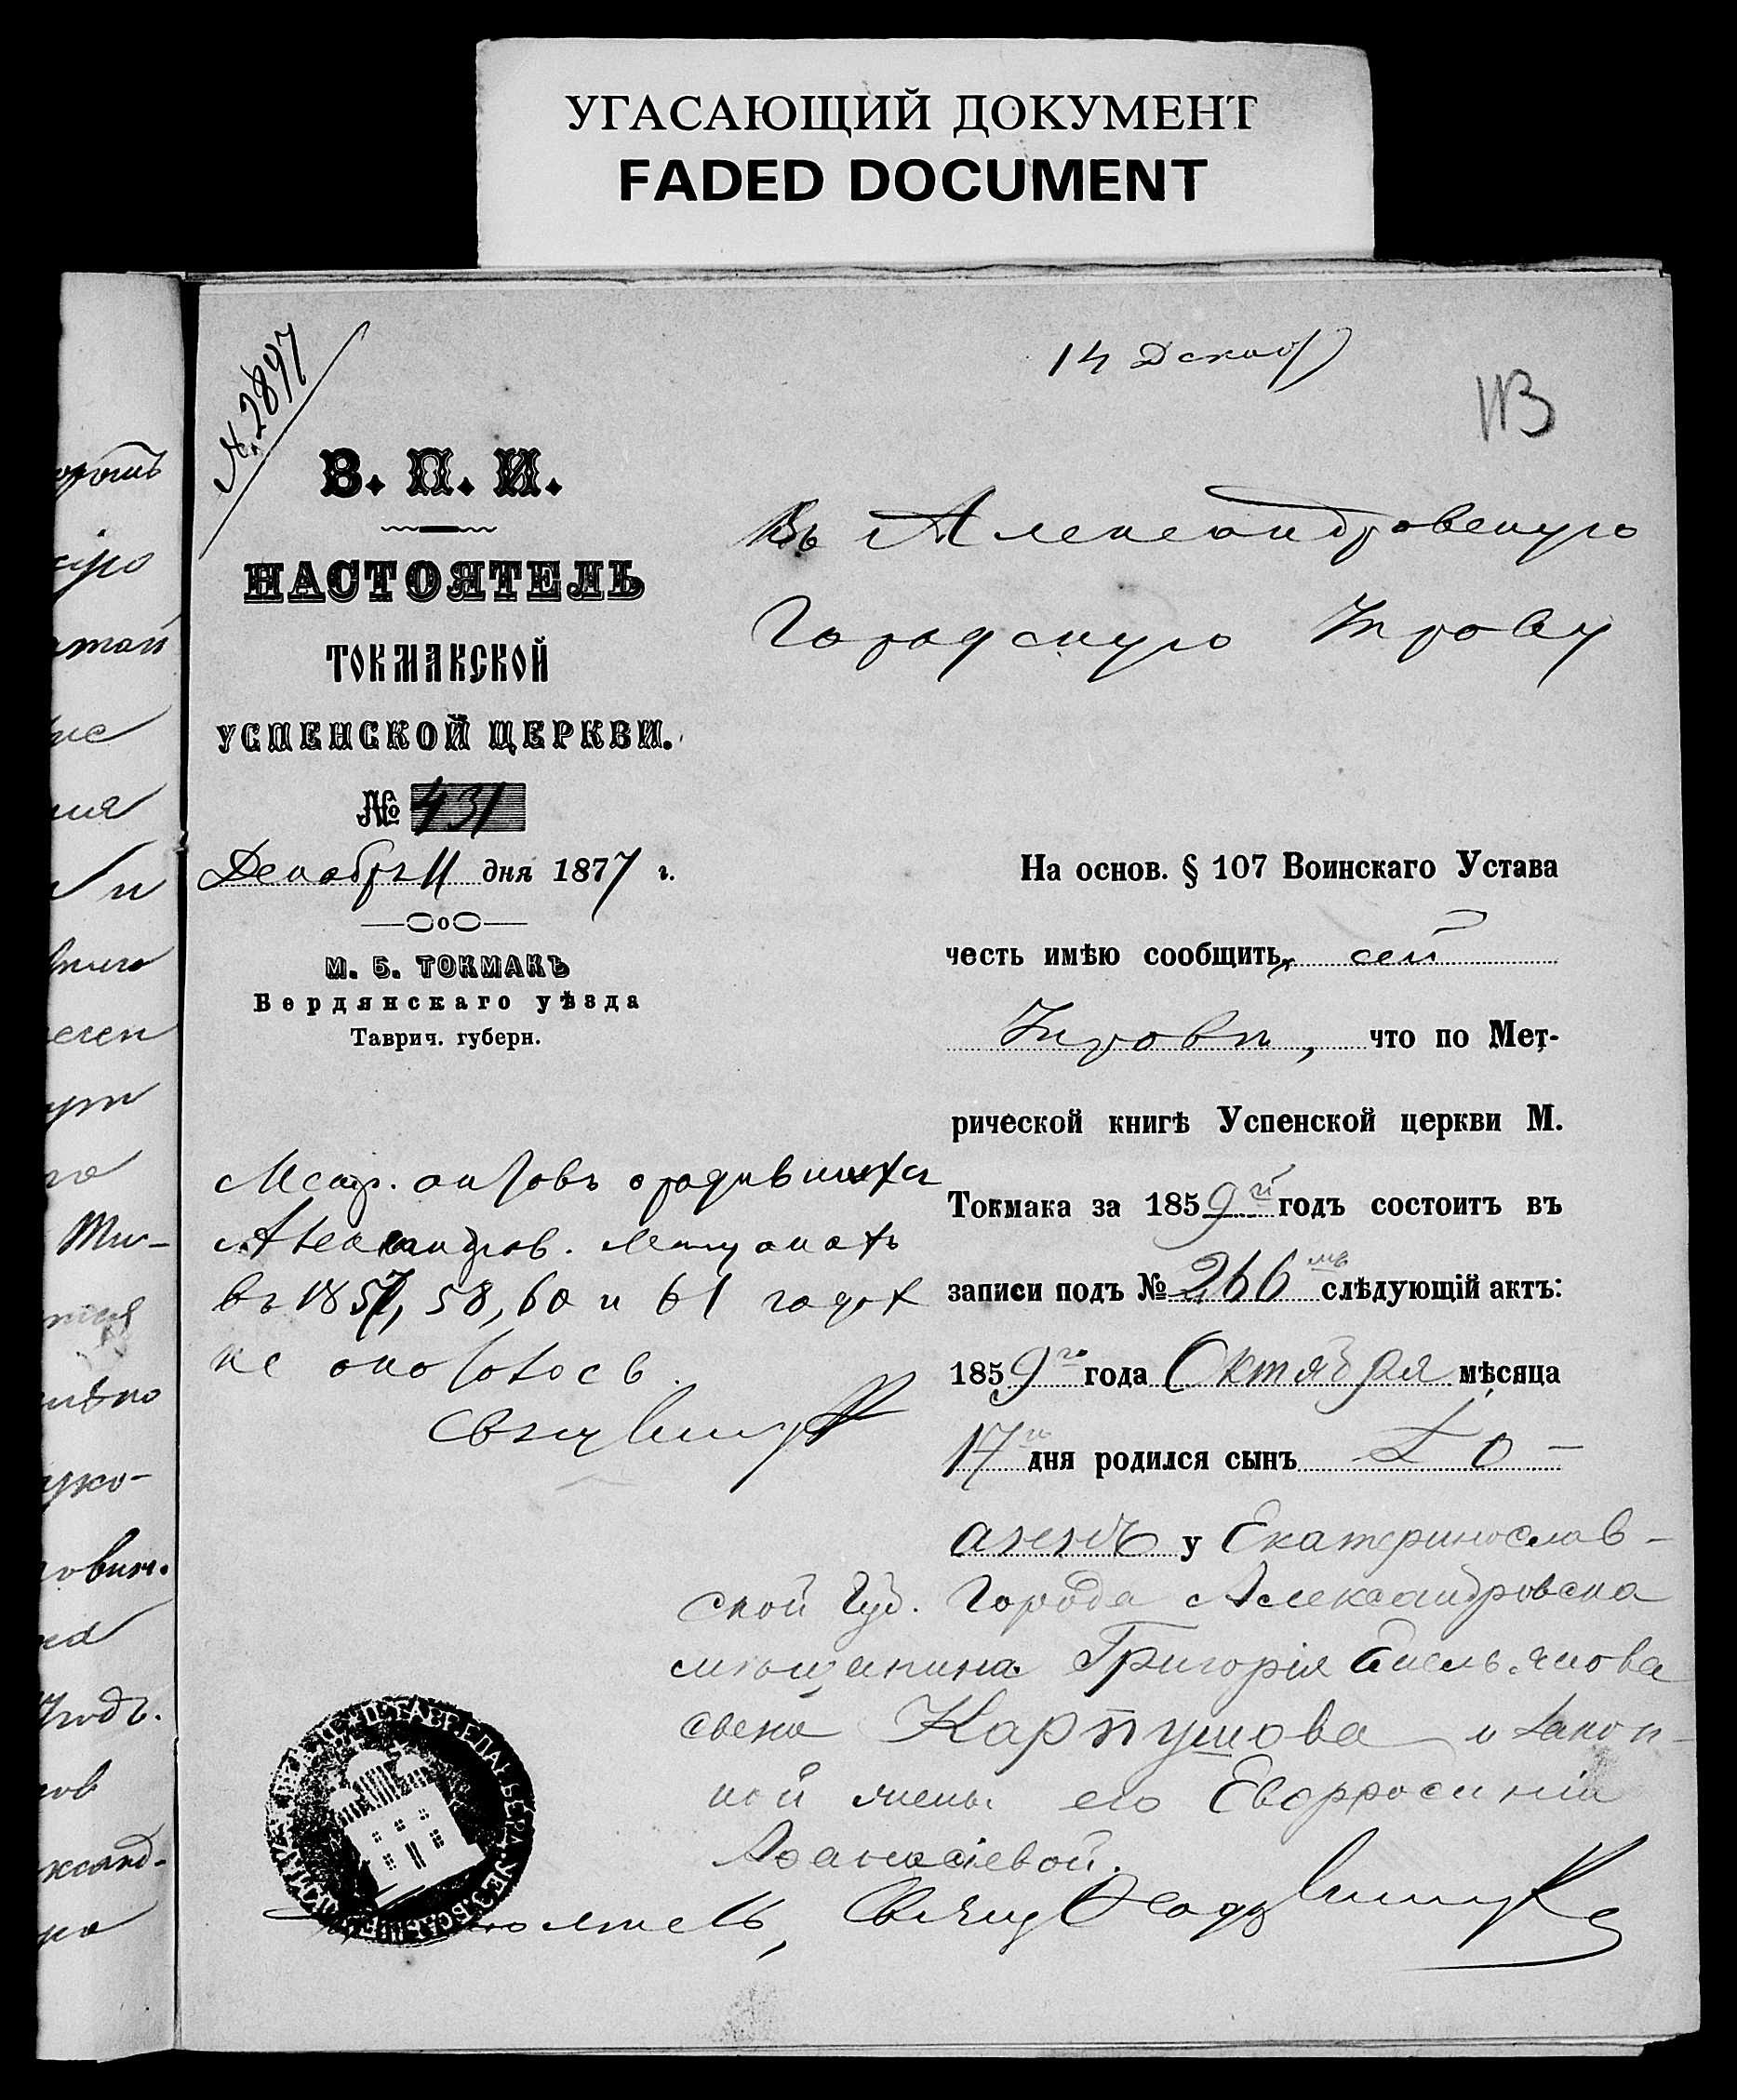 УГАСАЮЩИЙ ДОКУМЕНТ
FADED DOCUMENT
№ 2897
14 Декаб
113
В. П. И.
НАСТОЯТЕЛЬ
ТОКМАКСКОЙ
УСПЕНСКОЙ ЦЕРКВИ.
№ 431
Декабря 11 дня 1877 г.
М. Б. ТОКМАКЪ
Бердянскаго уѣзда
Таврич. губерн.
Въ Александровскую
Городскую Управу
На основ. § 107 Воинскаго Устава
честь имѣю сообщить сей
Управѣ, что по Мет-
рической книгѣ Успенской церкви М.
Токмака за 1859й годъ состоитъ въ
записи подъ № 266мъ слѣдующій актъ:
1859го года Октября мѣсяца
17го дня родился сынъ Іо-
аннъ у Екатеринослав-
ской Губ. Города Александровска
мѣщанина Григорія Емельянова
сына Карпушова и закон-
ной жены его Евфросиніи
Афанасіевой.
Метр. актовъ о родившихся
Александров. мѣщанахъ
въ 1857, 58, 60 и 61 годах
не оказалось.
Свящ
Свящ